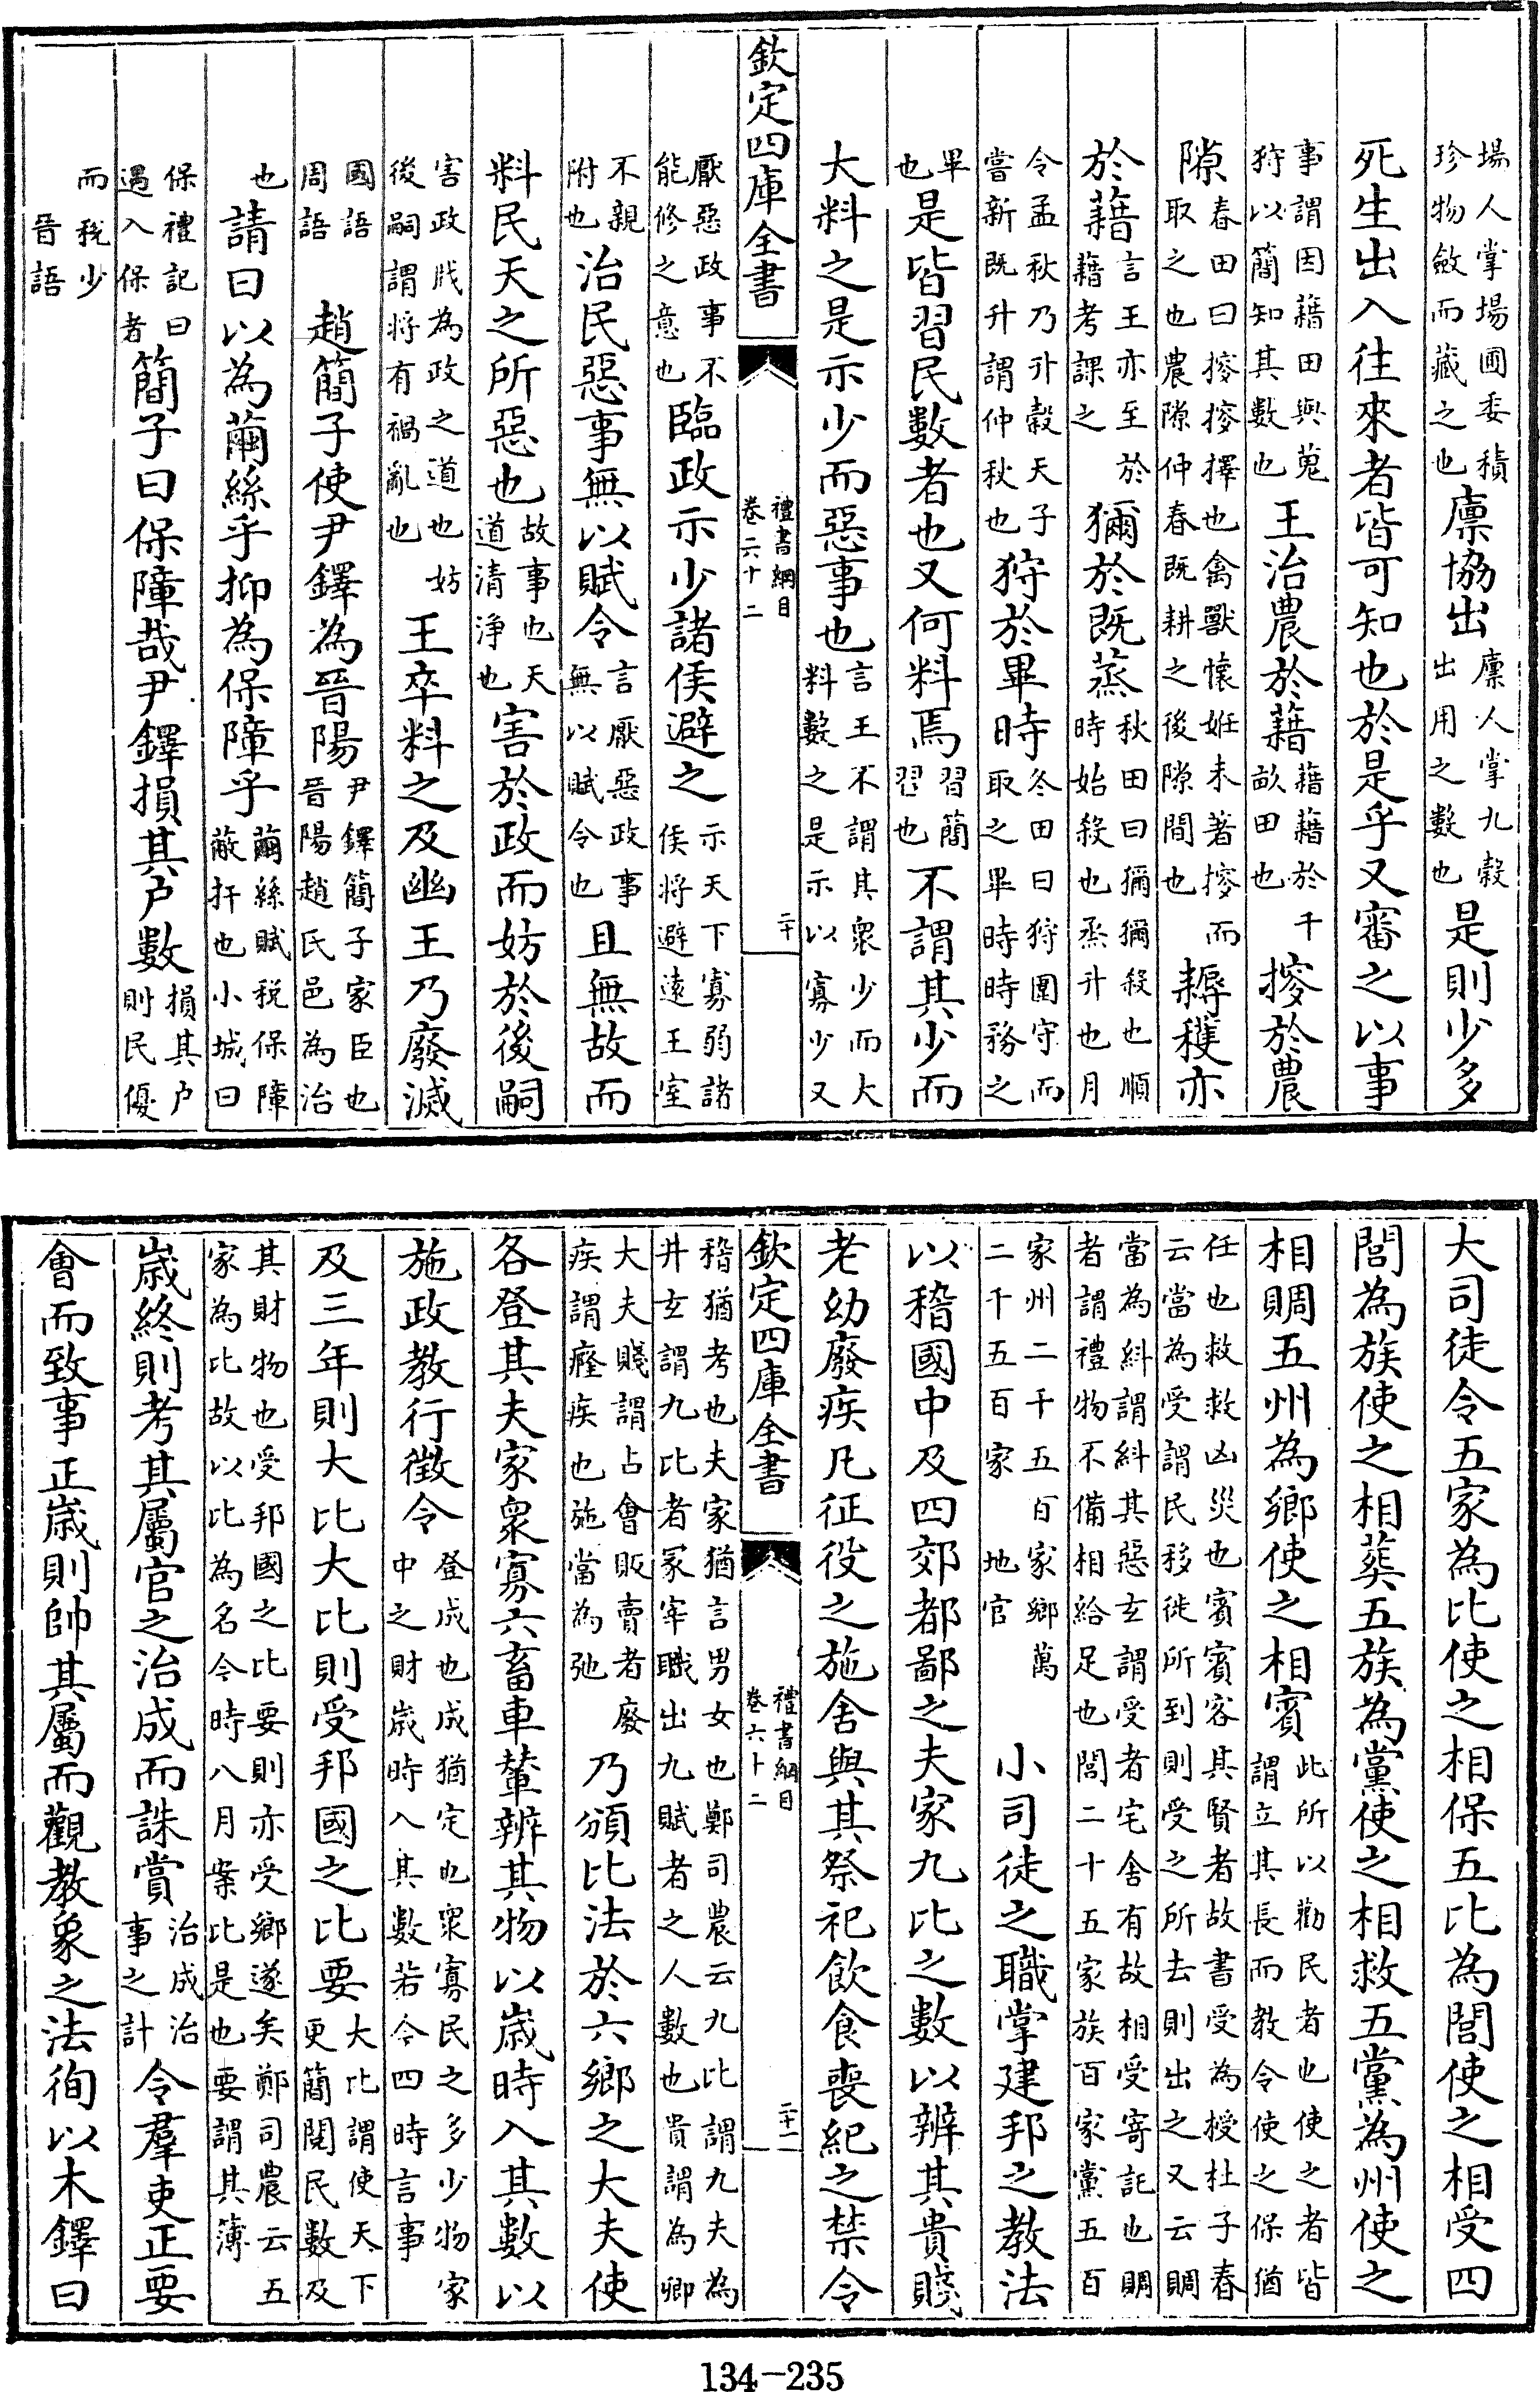 場人掌場圃委積珍物斂而藏之也廩協出廩人掌九穀出用之數也是則少多
死生出入往來者皆可知也於是乎又審之以事
事謂因藉田與蒐狩以簡知其數也王治農於藉藉藉於千畝田也搜於農
隙春田曰搜搜擇也禽獸懷妊未著搜而取之也農隙仲春既耕之後隙間也耨穫亦
於藉言王亦至於藉考課之獮於既蒸秋田曰獮獮殺也順時始殺也烝升也月
令孟秋乃升穀天子嘗新既升謂仲秋也狩於畢時冬田曰狩圍守而取之畢時時務之
畢也是皆習民數者也又何料焉習簡習也不謂其少而
大料之是示少而惡事也言王不謂其衆少而大料數之是示以寡少又
欽定四庫全書 禮書綱目卷六十二 二十
厭惡政事不能修之意也臨政示少諸侯避之示天下寡弱諸侯將避遠王室
不親附也治民惡事無以賦令言厭惡政事無以賦令也且無故而
料民天之所惡也故事也天道清淨也害於政而妨於後嗣
害政戕為政之道也妨後嗣謂將有禍亂也王卒料之及幽王乃廢滅
國語周語 趙簡子使尹鐸為晉陽尹鐸簡子家臣也晉陽趙氏邑為治
也請曰以為繭絲乎抑為保障乎繭絲賦稅保障蔽扞也小城曰
保禮記曰遇入保者簡子曰保障哉尹鐸損其户數損其户則民優
而稅少 晉語
大司徒令五家為比使之相保五比為閭使之相受四
閭為族使之相葬五族為黨使之相救五黨為州使之
相賙五州為鄉使之相賓此所以勸民者也使之者皆謂立其長而教令使之保猶
任也救救凶災也賓賓客其賢者故書受為授杜子春云當為受謂民移徙所到則受之所去則出之又云賙
當為糾謂糾其惡玄謂受者宅舍有故相受寄託也賙者謂禮物不備相給足也閭二十五家族百家黨五百
家州二千五百家鄉萬二千五百家 地官 小司徒之職掌建邦之教法
以稽國中及四郊都鄙之夫家九比之數以辨其貴賤
老幼廢疾凡征役之施舍與其祭祀飲食喪紀之禁令
欽定四庫全書 禮書綱目卷六十二 二十一
稽猶考也夫家猶言男女也鄭司農云九比謂九夫為井玄謂九比者冢宰職出九賦者之人數也貴謂為卿
大夫賤謂占會販賣者廢疾謂癃疾也施當為弛乃頒比法於六鄉之大夫使
各登其夫家衆寡六畜車輦辨其物以歲時入其數以
施政教行徵令登成也成猶定也衆寡民之多少物家中之財歲時入其數若今四時言事
及三年則大比大比則受邦國之比要大比謂使天下更簡閱民數及
其財物也受邦國之比要則亦受鄉遂矣鄭司農云五家為比故以比為名今時八月案比是也要謂其簿
歲終則考其屬官之治成而誅賞治成治事之計令羣吏正要
會而致事正歲則帥其屬而觀教象之法徇以木鐸曰
134-235